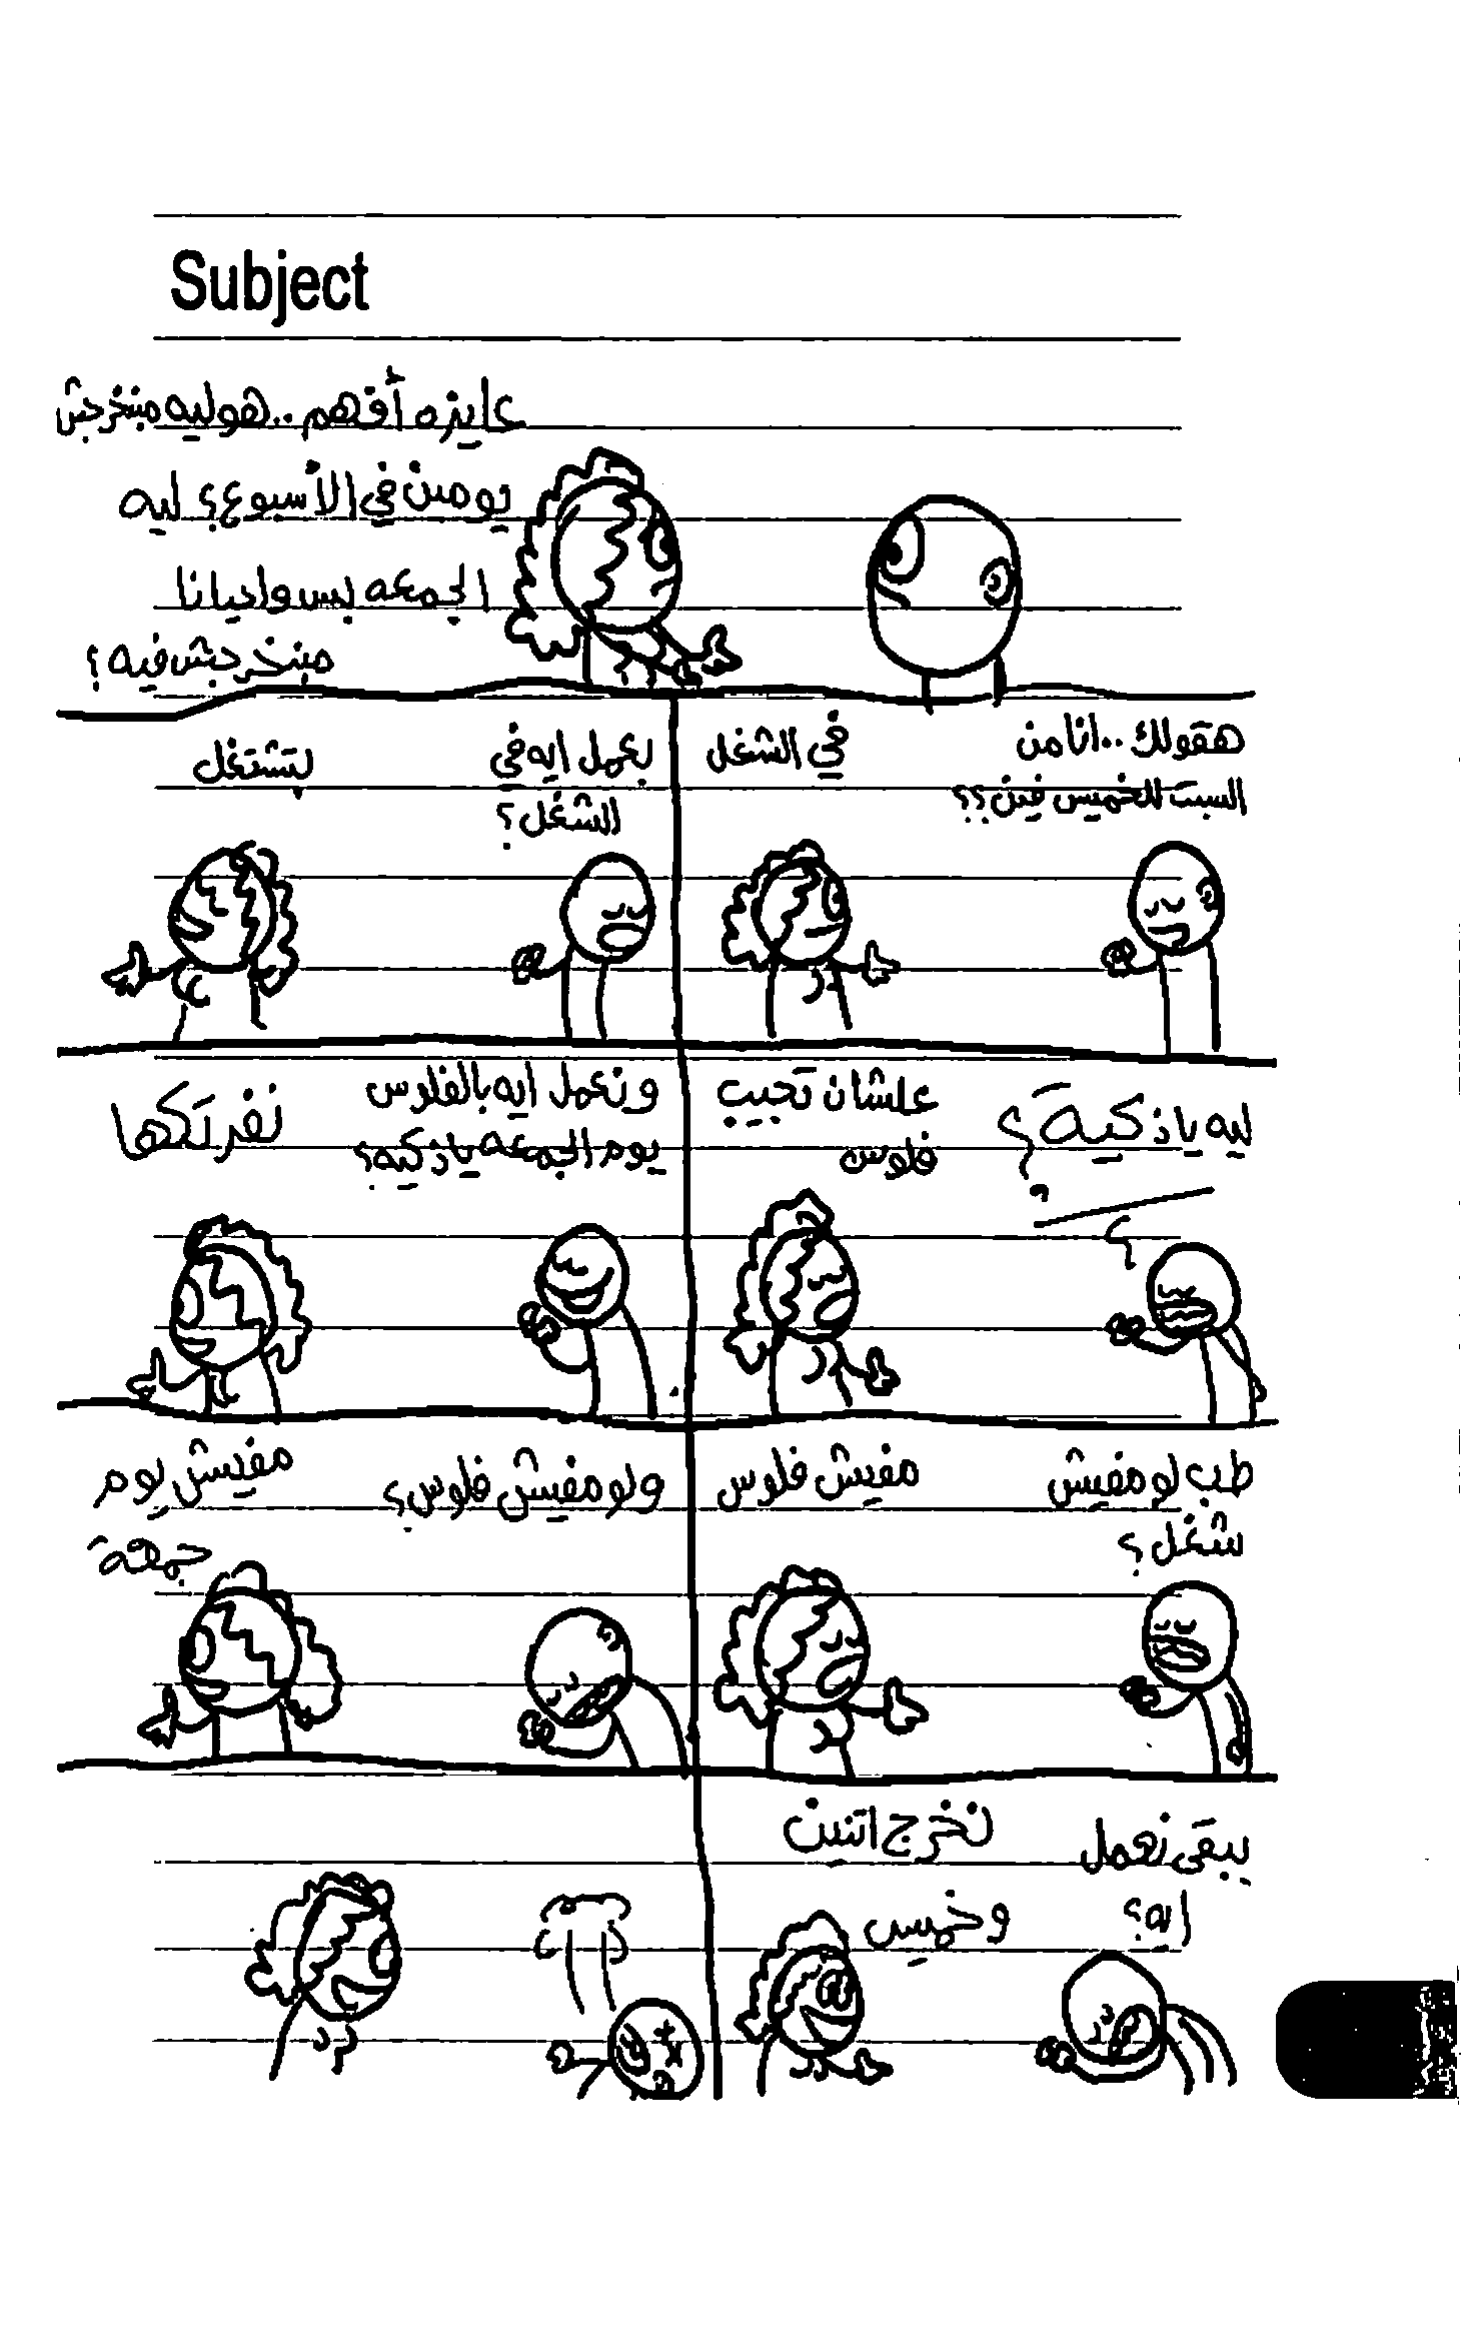 Subject
عايزه أفهم ..هو ليه مبنخرجش
يومين في الأسبوع؟ ليه
الجمعه بس واحيانا
مبنخرجش فيه؟
هقولك ..انا من
السبت للخميس فين؟؟
في الشغل
بعمل ايه في
الشغل؟
بتشتغل
ليه يا ذكية؟
علشان تجيب
فلوس
ونعمل ايه بالفلوس
يوم الجمعه يا ذكيه؟
نفرتكها
طب لو مفيش
شغل؟
مفيش فلوس
ولو مفيش فلوس؟
مفيش يوم
جمعة
يبقى نعمل
ايه؟
نخرج اتنين
وخميس